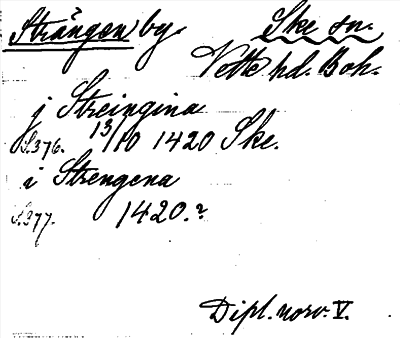 Strängen by. Ske sn.
Vette hd. Boh.
j Streingina
S.376. 13/10 1420 Ske.
i Strengena
S.377. 1420.?
Dipl. norv. V.